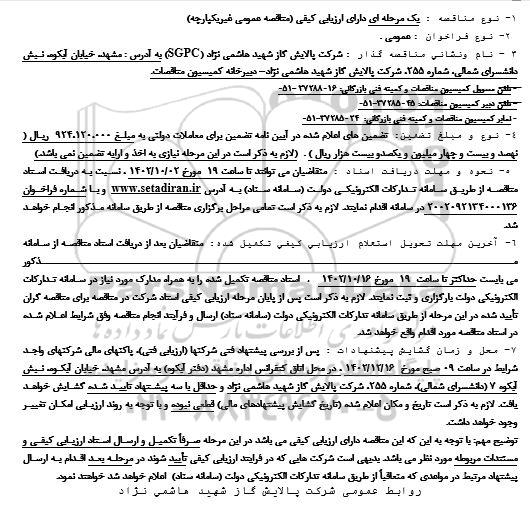 ۱- نوع مناقصه : یک مرحله ای دارای ارزیابی کیفی (مناقصه عمومی غیریکپارچه)
۲ - نوع فراخوان : عمومی .
۳ - نام ونشانی مناقصه گذار : شرکت پالایش گاز شهید هاشمی نژاد (SGPC) به آدرس : مشهد، خیابان آبکوه، نبش
دانشسرای شمالی، شماره ۲۵۵، شرکت پالایش گاز شهید هاشمی نژاد- دبیرخانه کمیسیون مناقصات.
- تلفن مسوول کمیسیون مناقصات و کمیته فنی بازرگانی: ۱۶-۳۷۲۸۸-۰۵۱
- تلفن دبیر کمیسیون مناقصات: ۴۵-۳۷۲۸۵-۰۵۱
- نمابر کمیسیون مناقصات و کمیته فنی بازرگانی: ۲۴-۳۷۲۸۵-۰۵۱
۴- نوع و مبلغ تضمین: تضمین های اعلام شده در آیین نامه تضمین برای معاملات دولتی به مبلغ ۹۲۴.۱۲۰.۰۰۰ ریال (
نهصد و بیست و چهار میلیون و یکصدو بیست هزار ریال ) . (لازم به ذکر است در این مرحله نیازی به اخذ و ارایه تضمین نمی باشد)
۵- نحوه و مهلت دریافت اسناد : متقاضیان می توانند تا ساعت ۱۹ مورخ ۱۴۰۲/۱۰/۰۲ ، نسبت به دریافت اسناد
مناقصه از طریق سامانه تدارکات الکترونیکی دولت (سامانه ستاد) به آدرس www.setadiran.ir و با شماره فراخوان
۲۰۰۲۰۹۲۱۳۴۰۰۰۱۳۶ در سامانه اقدام نمایند. لازم به ذکر است تمامی مراحل برگزاری مناقصه از طریق سامانه مذکور انجام خواهد
شد.
۶- آخرین مهلت تحویل استعلام ارزیابی کیفی تکمیل شده: متقاضیان بعد از دریافت اسناد مناقصه از سامانه
مذکور
می بایست حداکثر تا ساعت ۱۹ مورخ ۱۴۰۲/۱۰/۱۶ ، اسناد مناقصه تکمیل شده را به همراه مدارک مورد نیاز در سامانه تدارکات
الکترونیکی دولت بارگزاری و ثبت نمایند. لازم به ذکر است پس از پایان مرحله ارزیابی کیفی اسناد شرکت در مناقصه برای مناقصه گران
تأیید شده در این مرحله از طریق سامانه تدارکات الکترونیکی دولت (سامانه ستاد) ارسال و فرآیند انجام مناقصه وفق شرایط اعلام شده
در اسناد مناقصه مورد اقدام واقع خواهد شد.
۷- محل و زمان گشایش پیشنهادات : پس از بررسی پیشنهاد فنی شرکتها (ارزیابی فنی)، پاکتهای مالی شرکتهای واجد
شرایط در ساعت ۰۹ صبح مورخ ۱۴۰۲/۱۲/۱۶ ، در محل اتاق کنفرانس اداره مشهد (دفتر آبکوه) به آدرس مشهد، خیابان آبکوه، نبش
آبکوه ۷ (دانشسرای شمالی)، شماره ۲۵۵، شرکت پالایش گاز شهید هاشمی نژاد و حداقل با سه پیشنهاد تایید شده گشایش خواهد
یافت. لازم به ذکر است تاریخ و مکان اعلام شده، (تاریخ گشایش پیشنهادهای مالی) قطعی نبوده و با توجه به روند ارزیابی امکان تغییر
وجود خواهد داشت.
توضیح مهم: با توجه به این که این مناقصه دارای ارزیابی کیفی می باشد در این مرحله صرفاً تکمیل و ارسال اسناد ارزیابی کیفی و
مستندات مربوطه مورد نظر می باشد. بدیهی است شرکت هایی که در فرایند ارزیابی کیفی تأیید شوند در مرحله بعد اقدام به ارسال
پیشنهاد مرتبط در مواعدی که متعاقباً از طریق سامانه تدارکات الکترونیکی دولت (سامانه ستاد) اعلام خواهد شد خواهند نمود.
روابط عمومی شرکت پالایش گاز شهید هاشمی نژاد